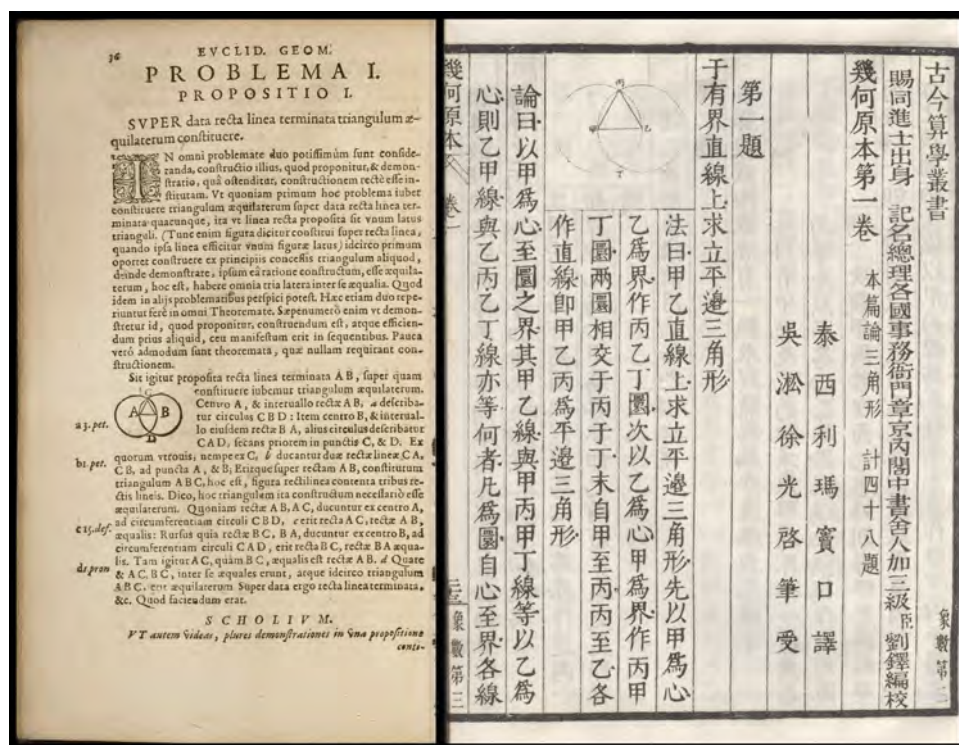 36
EVCLID. GEOM.
PROBLEMA I.
PROPOSITIO I.
SVPER data recta linea terminata triangulum æ-
quilaterum conſtituere.
IN omni problemate duo potiſſimùm ſunt conſide-
randa, conſtructio illius, quod proponitur, & demon-
ſtratio, quâ oſtenditur, conſtructionem rectè eſſe in-
ſtitutam. Vt quoniam primum hoc problema iubet
conſtituere triangulum æquilaterum ſuper data recta linea ter-
minata quacunque, ita vt linea recta propoſita ſit vnum latus
trianguli. (Tunc enim figura dicitur conſtitui ſuper recta linea,
quando ipſa linea efficitur vnum figuræ latus) idcirco primum
oportet conſtruere ex principiis conceſſis triangulum aliquod,
deinde demonſtrare, ipſum ea ratione conſtructum, eſſe æquila-
terum, hoc eſt, habere omnia tria latera inter ſe æqualia. Quod
idem in alijs problematibus perſpici poteſt. Hæc etiam duo repe-
riuntur ferè in omni Theoremate. Sæpenumerò enim vt demon-
ſtretur id, quod proponitur, conſtruendum eſt, atque efficien-
dum prius aliquid, ceu manifeſtum erit in ſequentibus. Pauca
verò admodum ſunt theoremata, quæ nullam requirant con-
ſtructionem.
Sit igitur propoſita recta linea terminata A B, ſuper quam
conſtituere iubemur triangulum æquilaterum.
a 3. pet.
Centro A, & interuallo rectæ A B, a deſcriba-
tur circulus C B D : Item centro B, & interual-
lo eiuſdem rectæ B A, alius circulus deſcribatur
C A D, ſecans priorem in punctis C, & D. Ex
C
A B
D
b 1. pet.
quorum vtrouis, nempe ex C, b ducantur duæ rectæ lineæ C A,
C B, ad puncta A, & B, Eritque ſuper rectam A B, conſtitutum
triangulum A B C, hoc eſt, figura rectilinea contenta tribus re-
ctis lineis. Dico, hoc triangulum ita conſtructum neceſſariò eſſe
æquilaterum. Quoniam rectæ A B, A C, ducuntur ex centro A,
c 15. def.
ad circumferentiam circuli C B D, c erit recta A C, rectæ A B,
æqualis : Rurſus quia rectæ B C, B A, ducuntur ex centro B, ad
circumferentiam circuli C A D, erit recta B C, rectæ B A æqua-
lis. Tam igitur A C, quàm B C, æqualis eſt rectæ A B. d Quare
d 1. pron
& A C, B C, inter ſe æquales erunt, atque idcirco triangulum
A B C, erit æquilaterum. Super data ergo recta linea terminata,
&c. Quod faciendum erat.
SCHOLIVM.
VT autem videas, plures demonſtrationes in vna propoſitione
conti-
古今算學叢書
象數第三
賜同進士出身 記名總理各國事務衙門章京內閣中書舍人加三級臣劉鐸編校
幾何原本第一卷 本篇論三角形 計四十八題
泰西利瑪竇口譯
吳淞徐光啓筆受
第一題
于有界直線上求立平邊三角形
丙
甲
乙
丁
法曰甲乙直線上求立平邊三角形先以甲爲心
乙爲界作丙乙丁圜次以乙爲心甲爲界作丙甲
丁圜兩圜相交于丙于丁末自甲至丙丙至乙各
作直線卽甲乙丙爲平邊三角形
論曰以甲爲心至圜之界其甲乙線與甲丙甲丁線等以乙爲
心則乙甲線與乙丙乙丁線亦等何者凡爲圜自心至界各線
幾何原本
卷一
象數第三